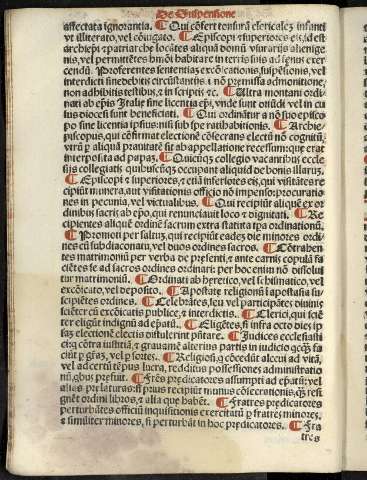 De Suspensione
affectata ignorantia. ¶ Qui cōfert tonsurā clericalē infanti
vt illiterato, vel cōiugato. ¶ Episcopi ⁊ superiores eis, id est
archiepi ⁊ patriarche locātes aliquā domū vsurarijs alienige
nis, vel permittētes hmōi habitare in terris suis ad fenus exer
cendū. Proferentes sententias excōicationis, suspēsionis, vel
interdicti sine debitis circūstantijs, i. nō premissa admonitione,
non adhibitis testibus, ⁊ in scriptis ⁊c. ¶ Ultra montani ordi
nati ab epīs Italie sine licentia epī, vnde sunt oriūdi vel in cu
ius diocesi sunt beneficiati. ¶ Qui ordinātur a nō suo episco
po sine licentia ipsius: nisi sub spe ratihabitionis. ¶ Archie/
piscopus, qui cōfirmat electionē ⁊ cōsecrans electū nōn cognitū,
vtrū p aliquā prauitatē sit ab appellatione recessum: que erat
interposita ad papaz. ¶ Quicūqz collegio vacantibus eccle
sijs collegiatis quibuscūqz occupant aliquid de bonis illarum.
¶ Episcopi ⁊ superiores, ⁊ etiā inferiores eis, qui visitātes re
cipiūt munera, aut visitationis officio nō impenso: procuratio
nes in pecunia, vel victualibus. ¶ Qui recipiūt aliquē ex or
dinibus sacris ab epō, qui renunciauit loco ⁊ dignitati. ¶ Re
cipientes aliquē ordinē sacrum extra statuta tpa ordinationū.
¶ Promoti per saltuz, qui recipiūt eadez die minores ordi
nes cū subdiaconatu, vel duos ordines sacros. ¶ Cōtrahen
tes matrimoniū per verba de presenti, ⁊ ante carnis copulā fa
ciētes se ad sacros ordines ordinari: per hoc enim nō dissolui
tur matrimoniū. ¶ Ordinati ab heretico, vel scismatico, vel
excōicato, vel deposito. ¶ Apostate religionū ī apostasia su
scipiētes ordines. ¶ Celebrātes, seu vel participātes diuinis
sciēter cū excōicatis publice, ⁊ interdictis. ¶ Clerici, qui sciē
ter eligūt indignū ad epatū. ¶ Eligētes, si infra octo dies ip
saz electionē electis postulerint pūtare. ¶ Judices ecclesiasti
ci: qz cōtra iustitiā, ⁊ grauamē alterius partis in iudicio qcqz fa
ciūt p grāz, vel p sortes. ¶ Religiosi, qz cōcedūt alicui ad vitā,
vel ad certū tēpus lucra, redditus possessiones administratio
nū, qbus presint. ¶ Frēs predicatores assumpti ad epatū: vel
alias prelaturas: si prius recipiūt munus cōsecrationis, qz resi
gnēt ordini libros, ⁊ alia que habēt. ¶ Fratres predicatores
perturbātes officiū inquisitionis exercitatū p fratres minores,
⁊ similiter minores, si perturbāt in hoc predicatores. ¶ Fra
tres